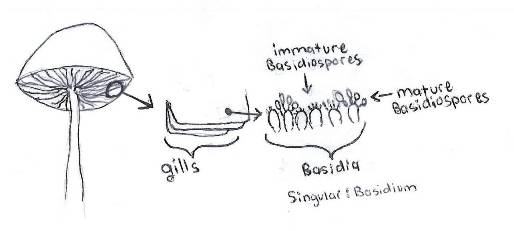 immature
Basidiospores
mature
Basidiospores
gills
Basidia
Singular: Basidium